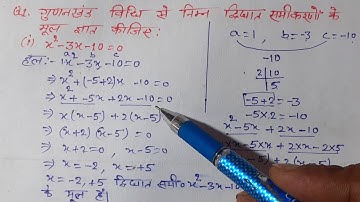 Q1. गुणनखंड विधि से निम्न द्विघात समीकरणों के
मूल ज्ञात कीजिए:
(i) x²-3x-10=0
हल:- 1x²-3x-10=0
⇒ x²+(-5+2)x -10=0
⇒ x²+-5x+2x-10=0
⇒ x(x-5)+2(x-5)
⇒ (x+2)(x-5)=0
⇒ x+2=0, x-5=0
⇒ x=-2, x=+5
x=-2,+5 द्विघात समी० x²-3x-10
के मूल हैं।
a=1, b=-3 c=-10
-10
2|10
5
-5+2=-3
-5×2=-10
x²-5x+2x-10
x-5×x+2×x-2×5